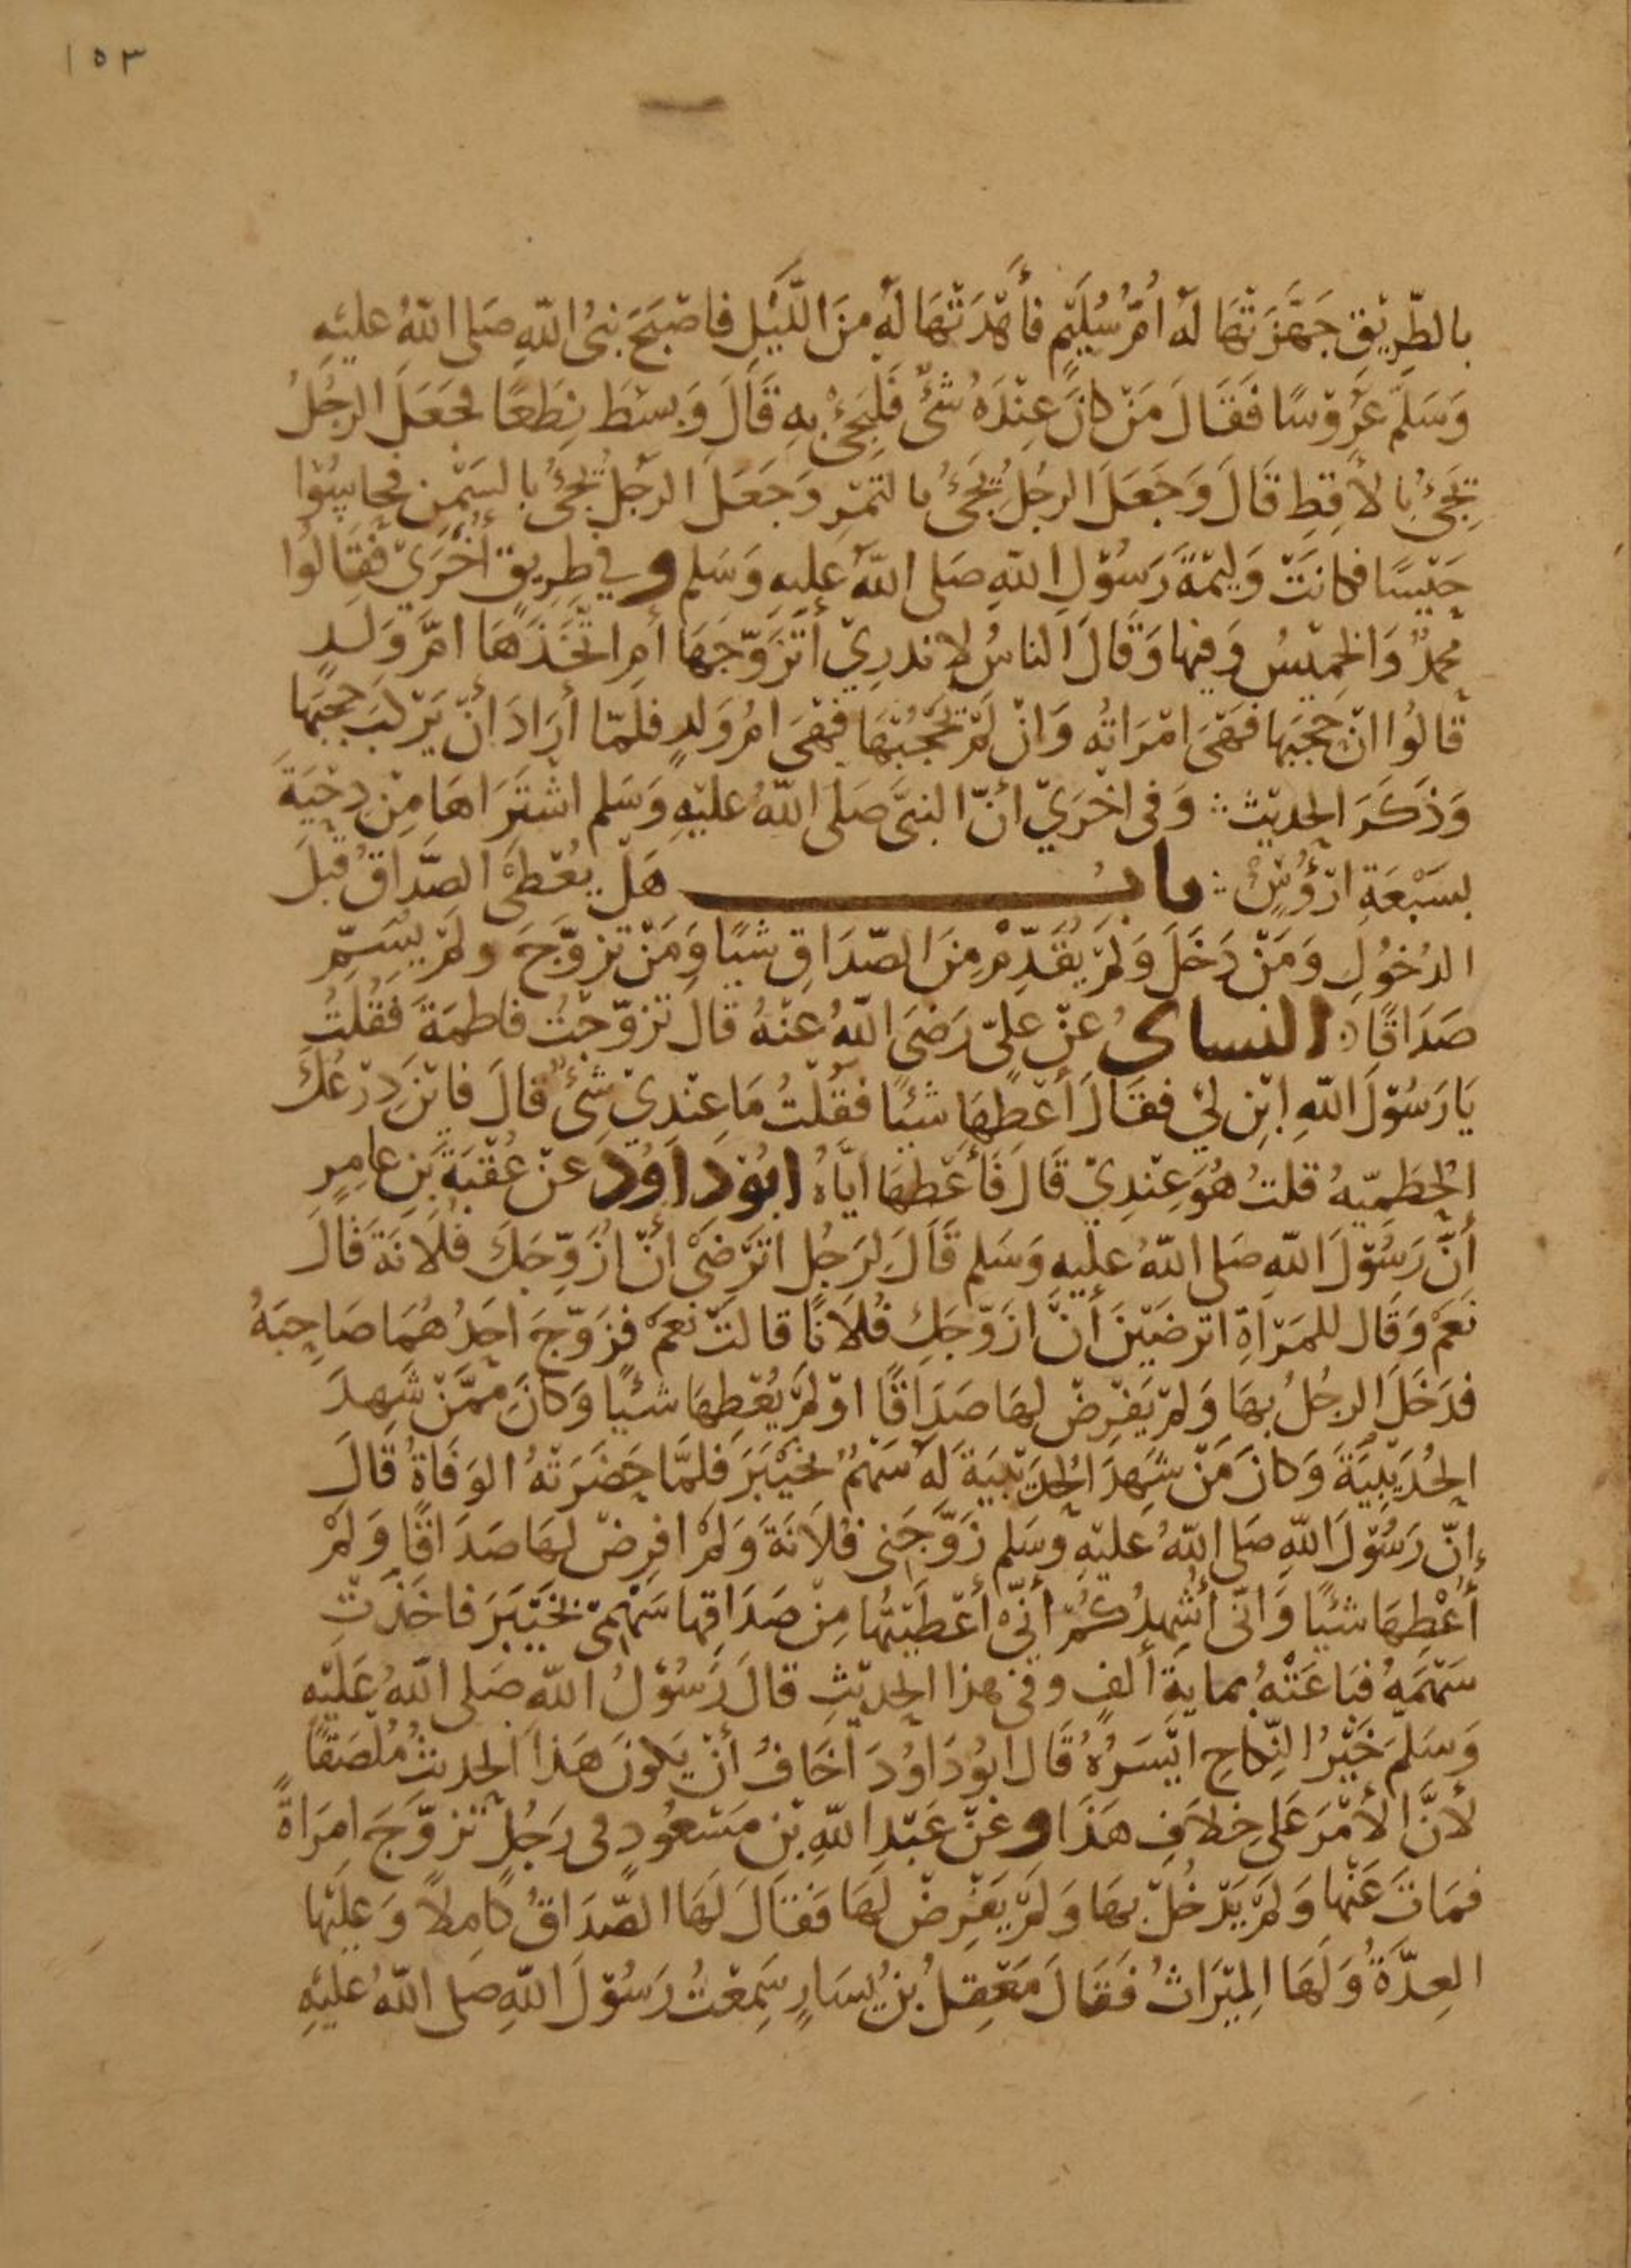 ١٥٣
بالطَّرِيْقِ جَهَّزَتْهَا لَهُ اُمُّ سُلَيْمٍ فَأَهْدَتْهَا لَهُ مِنَ اللَّيْلِ فَاصْبَحَ نبىُ اللّهِ صَلى اللّهُ عليْهِ
وَسَلّمَ عَرُوْسًا فَقَالَ مَنْ كانَ عِنْدَهُ شَىْءٌ فَلْيَجِئْ بِهِ قَالَ وَبسَطَ نِطَعًا فَجَعَلَ الرجُلُ
يَجِىْءُ بِالأَقِطِ قَالَ وَجَعَلَ الرجُلُ يَجِىْءُ بالتمْرِ وَجَعَلَ الرجُلُ يَجِىْءُ بالسَمْنِ فحاسُوْا
حَيْسًا فكانَتْ وَلِيْمَةَ رَسُوْلِ اللهِ صَلى اللّهُ عليهِ وَسَلم وفي طرِيق أخْرَيْ فقالُوا
محمدٌ وَالخمِيْسُ وَفيها وَقَالَ الناسُ لا ندرِيْ أتَزَوَّجَهَا أمِ اتَّخَذَهَا امَّ وَلَدٍ
قالُوا ان حَجَبَها فهَىَ امْرَاتُه وَانْ لَمْ يَحْجُبْهَا فهْىَ امُ وَلدٍ فلمّا أرَادَ أنْ يَرْكَبَ حجبَها
وَذَكَرَ الحدِيْث وَفى اخْرَيْ أنّ النبىَّ صَلى اللّهُ عليْهِ وَسَلم اشْتَرَاهَا مِنْ دِحْيَةَ
بسَبْعَةِ ارْؤُسٍ باب هَلْ يُعْطَىَ الصَّدَاقُ قَبلَ
الدُخُولِ وَمَنْ دَخَلَ وَلَمْ يُقَدِّمْ مِنَ الصّدَاقِ شيًا وَمَنْ تزوّجَ ولمْ يسَمِّ
صَدَاقًا النساىُ عَنْ علىّ رَضىَ اللّهُ عنْهُ قالَ تزوّجْتُ فاطمةَ فقُلتُ
يَا رَسُوْلَ اللهِ ابْنِ لِيْ فقَالَ أعْطِهَا شيْئًا فقُلْتُ مَا عِنْدِيْ شىْءٌ قَالَ فايْنَ دِرْعُكَ
الحُطَمِيّهُ قلتُ هُوَ عِنْدِيْ قَالَ فَأعْطِهَا ايَّاهُ ابُوْ دَاوُدَ عَنْ عُقْبَةَ بَنِ عامِرٍ
أنَّ رَسُوْلَ اللّهِ صَلى اللّهُ عليْهِ وَسَلم قَالَ لِرَجُلٍ اتَرْضَىْ انْ ازَوِّجَكَ فُلَانَةَ قالَ
نَعَمْ وَقَال للمَرْاةِ اترضَيْنَ أنْ ازَوّجَكِ فُلَانًا قالتْ نعَمْ فزَوّجَ احَدُهُمَا صَاحِبَهُ
فدَخَلَ الرجُلُ بهَا وَلمْ يَفْرِضْ لهَا صَدَاقًا اوْ لَمْ يُعْطِهَا شيْئًا وَكَانَ ممَّنْ شَهِدَ
الحُدَيْبِيَةَ وَكانَ مَنْ شَهِدَ الحُدَيْبِيَةَ لَهُ سَهْمٌ بخَيْبَرَ فَلمَّا حَضَرَتْهُ الوَفَاةُ قَالَ
إنّ رَسُوْلَ اللّهِ صَلى اللّهُ عَليْهِ وسَلم زَوَّجَنِى فُلَانَةَ وَلَمْ افرِضْ لهَا صَدَاقًا وَلمْ
أُعْطِهَا شيْئًا وَانّى أشْهِدُكُمْ أنِّىْ أعْطَيْتُهَا مِنْ صَدَاقِهَا سَهْمِىْ بخَيْبَرَ فاخَذَتْ
سَهْمَهُ فبَاعَتْهُ بمايةِ ألفٍ وفى هذا الحدِيْثِ قالَ رَسُوْلُ اللّهِ صَلى اللّهُ عَلَيْهِ
وَسَلم خَيْرُ النِّكاحِ ايْسَرُهُ قَالَ ابُوْ دَاوُدَ أخَافُ أنْ يَكونَ هَذَا الحديثُ مُلْصَقًا
لأنَّ الأمْرَ عَلى خِلافِ هَذَا وعَنْ عَبْدِ اللّهِ بْنِ مَسْعُودٍ فى رَجُلٍ تزوّجَ امرَاةً
فمَاتَ عَنْهَا وَلَمْ يَدْخُلْ بهَا وَلَمْ يَفْرِضْ لَهَا فَقَالَ لَهَا الصّدَاقُ كَامِلاً وَعلَيْهَا
العِدَّةُ وَلَهَا المِيْرَاثُ فَقَالَ مَعْقِلُ بْنُ يَسَارٍ سَمِعْتُ رَسُوْلَ اللّهِ صلى اللّهُ عليْهِ